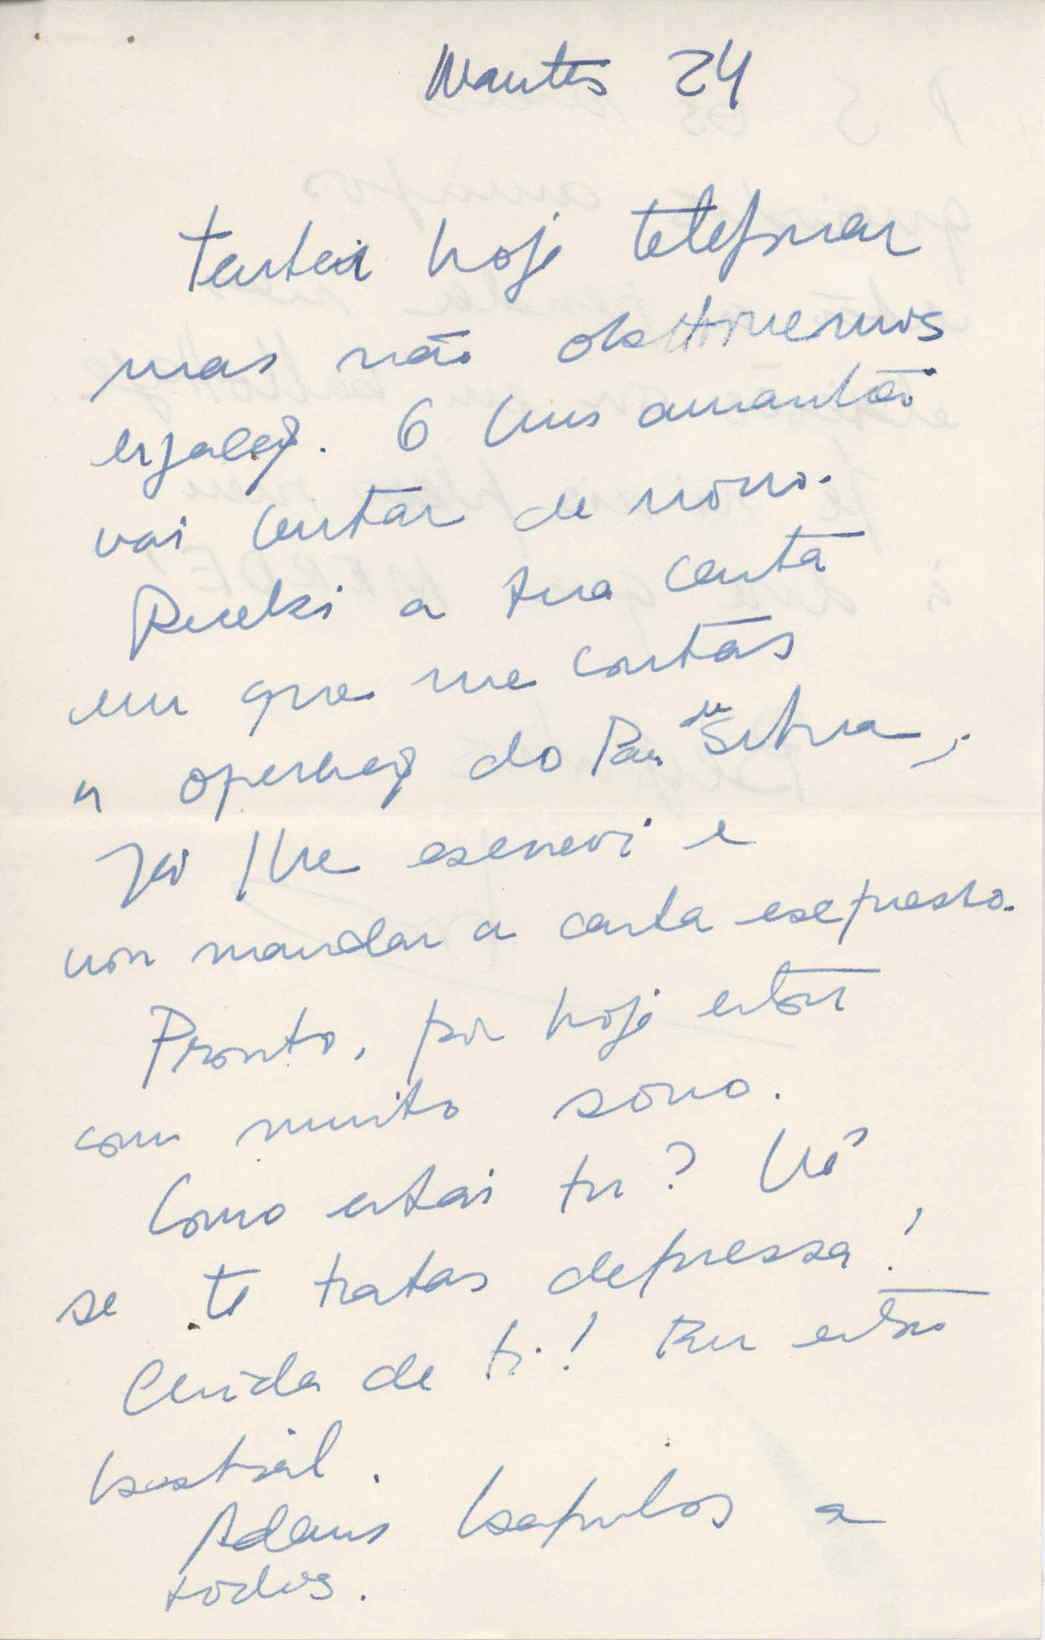 Nantes 24
Tentei hoje telefonar
mas não obtivemos
ligação. O Luis amanhã
vai tentar de novo.
Recebi a tua carta
em que me contas
a operação do de Silva,
Já lhe escrevi e
vou mandar a carta expresso.
Pronto, por hoje estou
com muito sono.
Como estás tu? Vê
se te tratas depressa!
Cuida de ti! Eu estou
bestial.
Adeus a
todos.